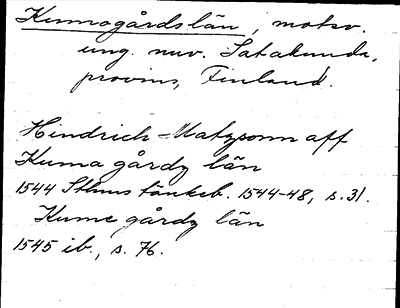 Kumogårdslän, motsv.
ung. nuv. Satakunda,
provins, Finland.
Hindrich Matzsonn aff
Kuma gårdz län
1544 Sthms tänkeb. 1544-48, s. 31.
Kume gårdz län
1545 ib., s. 76.